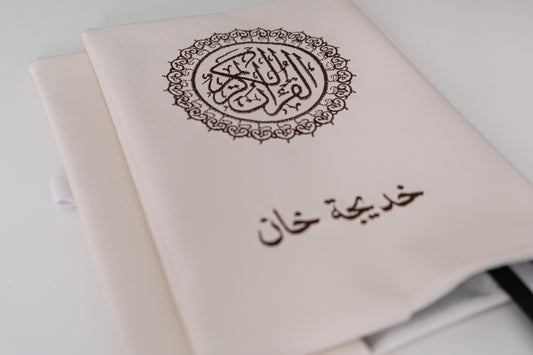 القرآن الكريم
خديجة خان